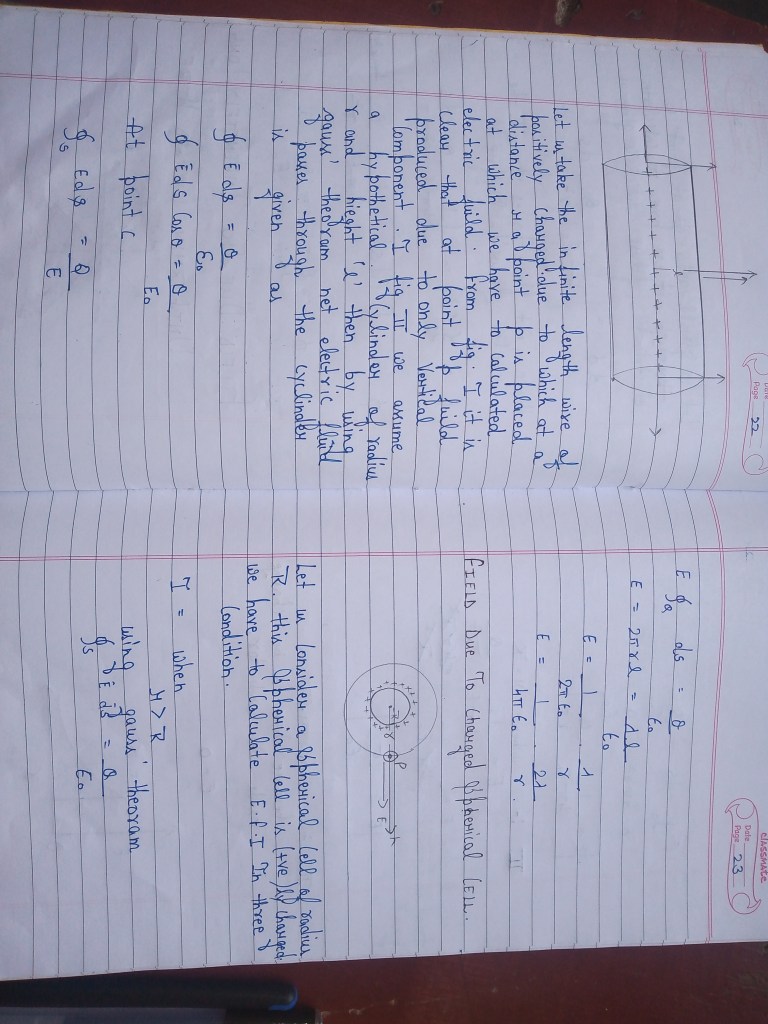 Date
Page 22
Let us take the infinite length wire of
positively charged due to which at a
distance r a point p is placed
at which we have to calculated
electric fuild. From fig. I it is
clear that at point p fuild
produced due to only vertical
component. I fig II we assume
a hypothetical cylinder of radius
r and hieght 'l' then by using
gauss' theoram net electric fluid
passes through the cyclinder
is given as
∮ E ds = Q/ε₀
∮ E ds cos θ = Q/ε₀
At point C
∮s E ds = Q/E
classmate
Date
Page 23
E ∮ ds = Q/ε₀
E = 2πrl = λl/ε₀
E = 1/2πε₀ . λ/r
E = 1/4πε₀ . 2λ/r
FIELD DUE TO Charged Spherical CELL.
R
r
P
E
Let us Consider a Spherical Cell of radius
R. this Spherical Cell is (+ve)ly charged
we have to Calculate E.F.I In three
Condition.
I = when
r > R
using gauss' theoram
∮s E ds = Q/ε₀